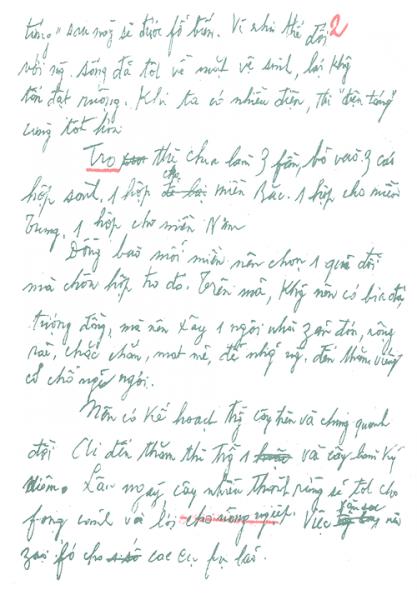 táng" sau này sẽ được fổ biến. Vì như thế đối 2
với ng. sống đã tốt về mặt vệ sinh, lại khg
tốn đất ruộng. Khi ta có nhiều điện, thì "điện táng"
càng tốt hơn.
Tro thì chia làm 3 fần, bỏ vào 3 cái
hộp sành, 1 hộp cho miền Bắc. 1 hộp cho miền
Trung, 1 hộp cho miền Nam
Đồng bào mỗi miền nên chọn 1 quả đồi
mà chôn hộp tro đó. Trên mả, khg nên có bia đá,
tượng đồng, mà nên xây 1 ngôi nhà zản đơn, rộng
rãi, chắc chắn, mát mẻ, để nhữg ng. đến thăm viếng
có chỗ nghỉ ngơi.
Nên có kế hoạch trồg cây trên và chung quanh
đồi. Ai đến thăm thì trồg 1 và cây làm kỷ
niệm. Lâu ngày, cây nhiều thành rừng sẽ tốt cho
fong cảnh và lợi cho nông nghiệp. Việc săn sóc nên
zao fó cho các cụ fụ lão.